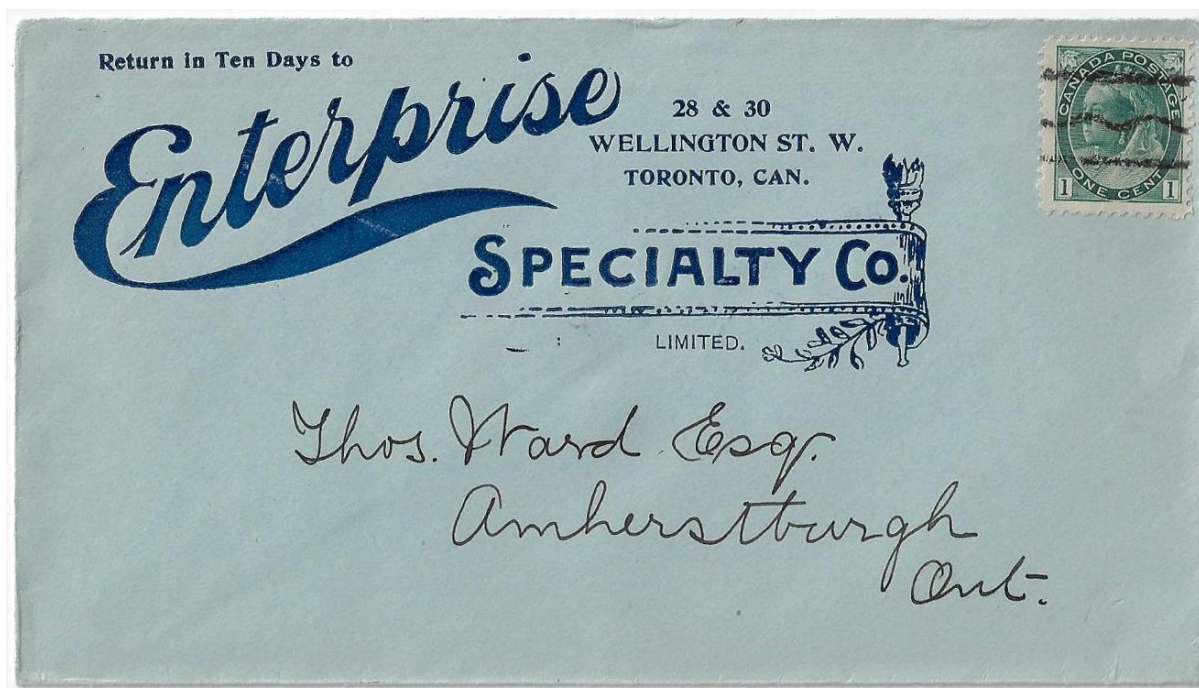 Return in Ten Days to
Enterprise
28 & 30
WELLINGTON ST. W.
TORONTO, CAN.
SPECIALTY Co.
LIMITED.
CANADA POSTAGE
1 ONE CENT 1
Thos. Ward Esq.
Amherstburgh
Ont.